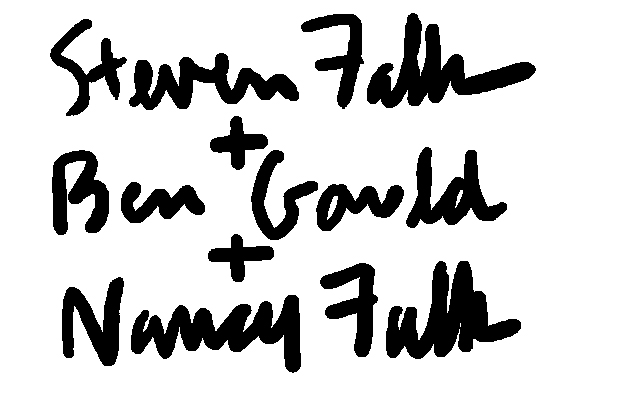 Steven Falk
+
Ben Gould
+
Nancy Falk